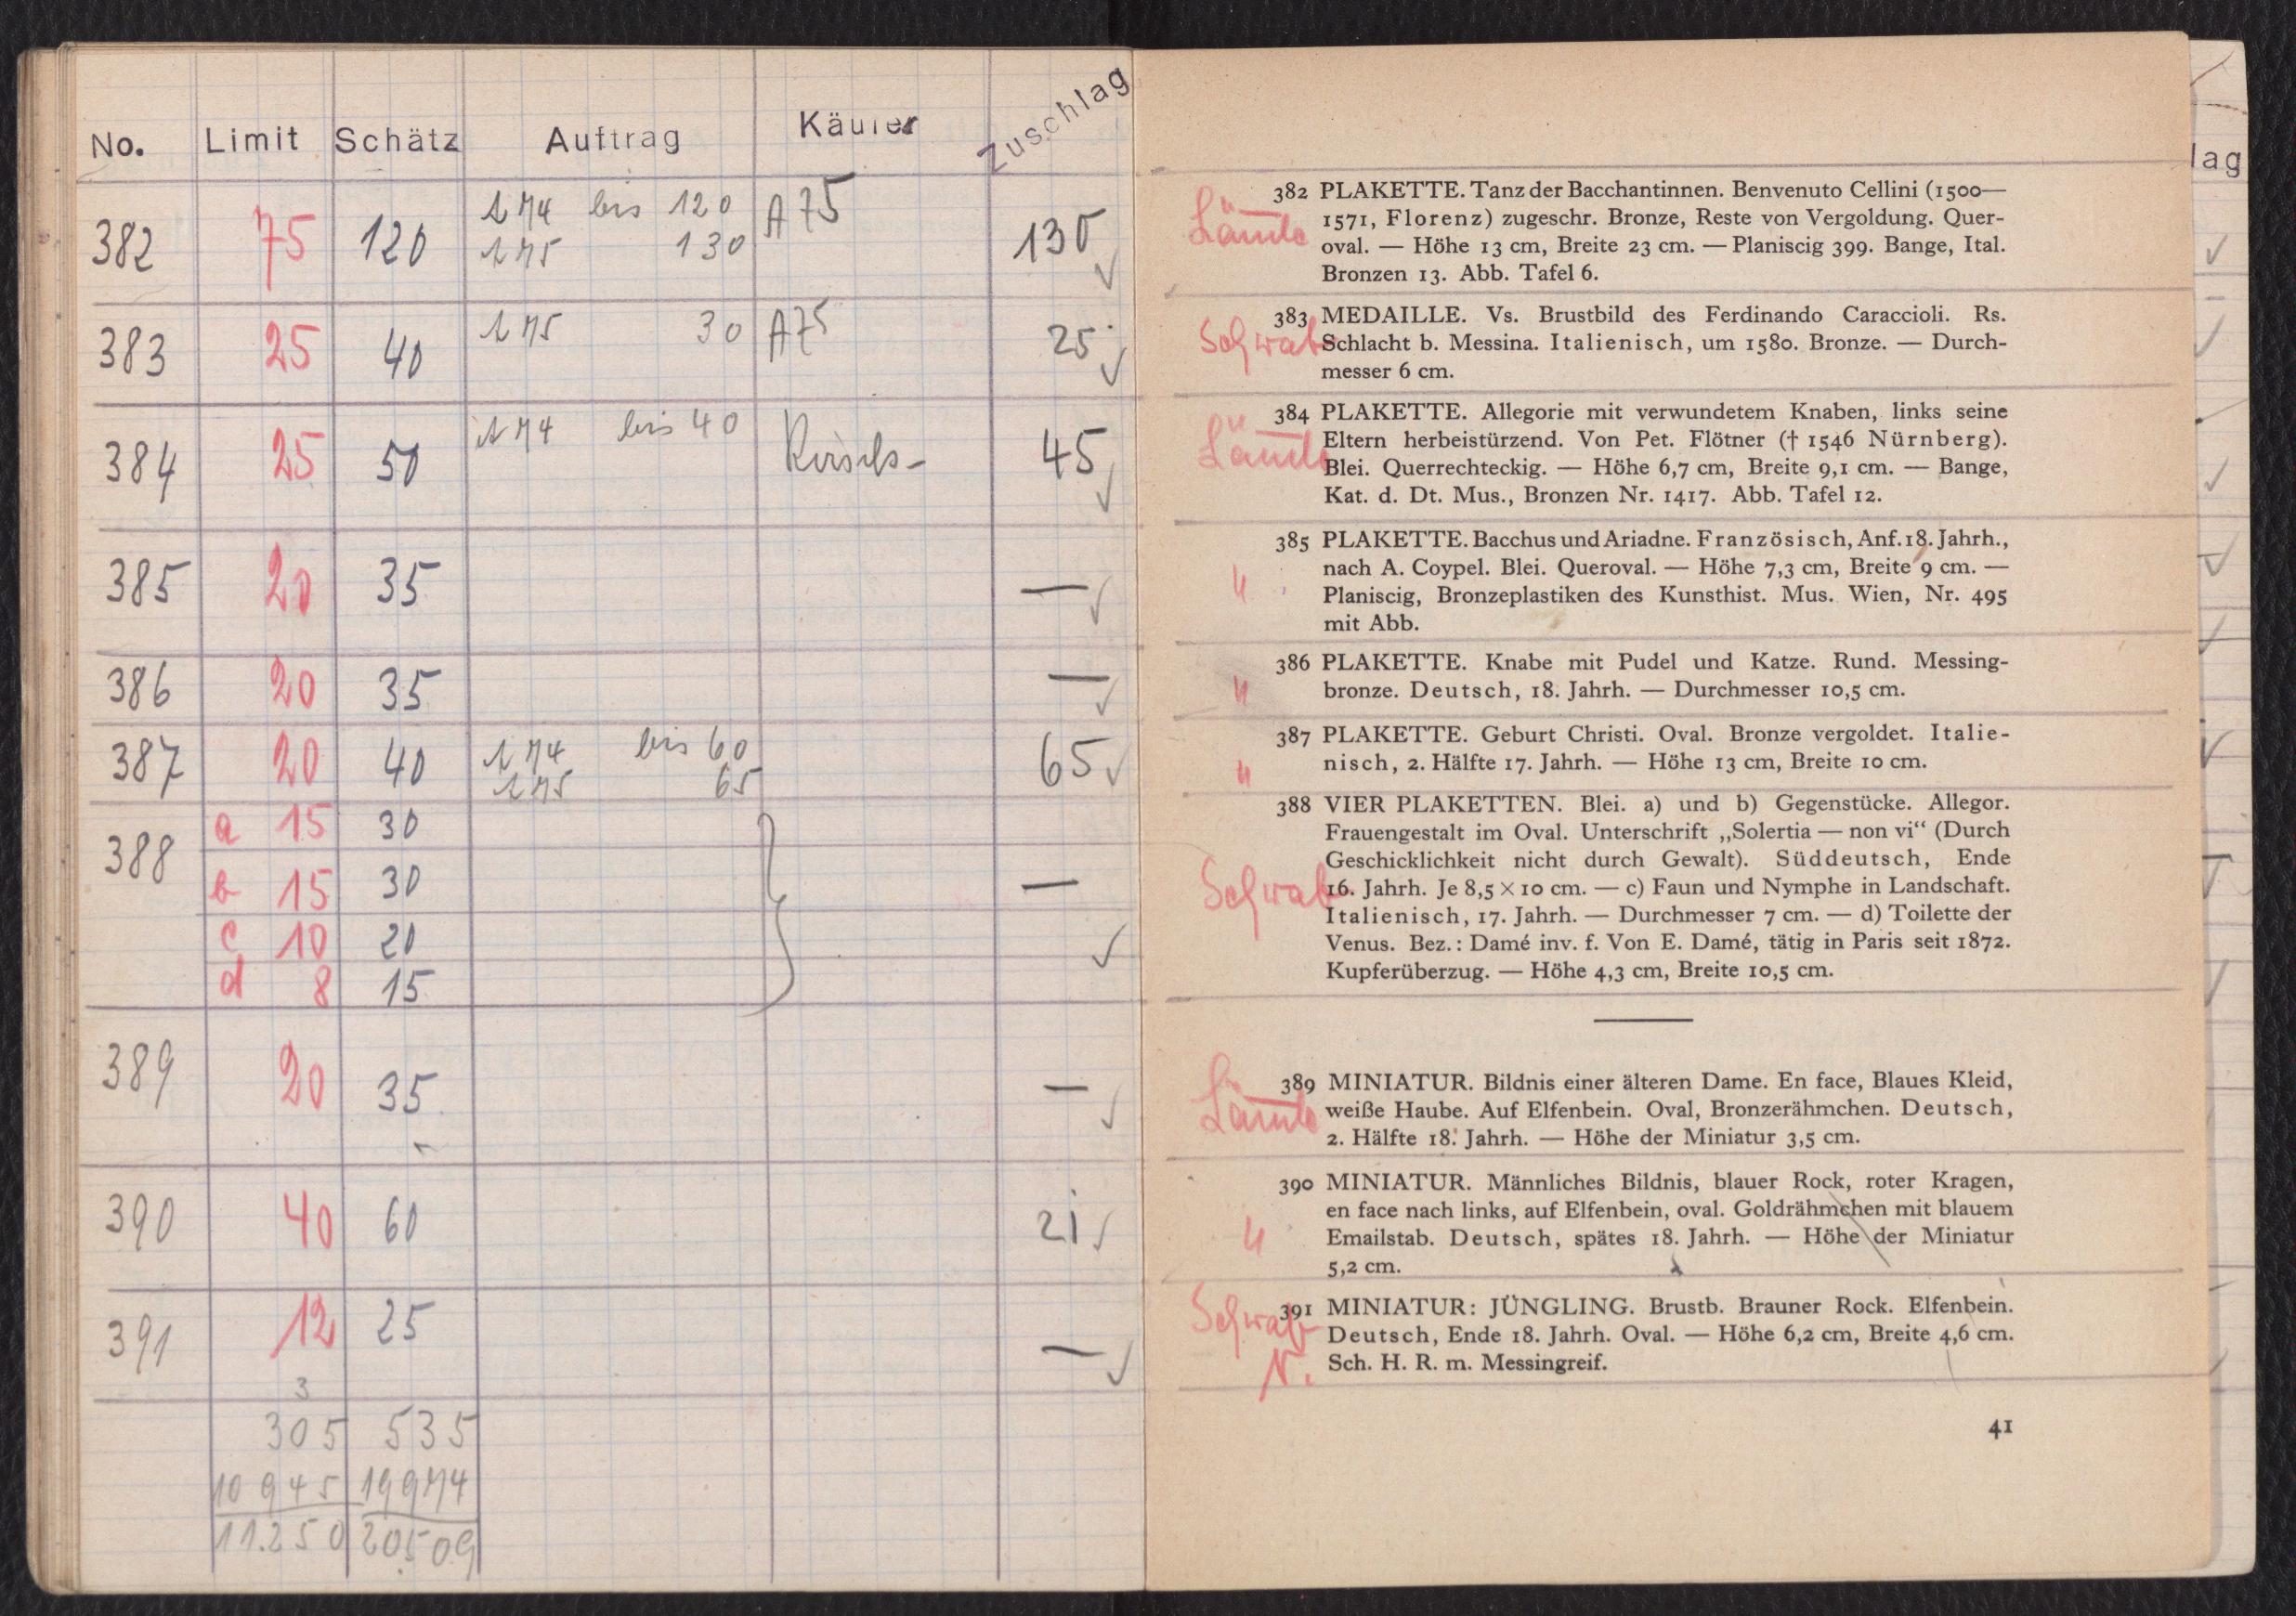 No. Limit Schätz Auftrag Käufer Zuschlag
382 75 120 bis 120 A 75 130 ✓
130
383 25 40 30 A 75 25 ✓
384 25 50 bis 40 45 ✓
385 20 35 — ✓
386 20 35 — ✓
387 20 40 bis 60 65 ✓
65
388 a 15 30
b 15 30 —
c 10 20 ✓
d 8 15
389 20 35 — ✓
390 40 60 21 ✓
391 12 25 — ✓
3
305 535
10945 19974
11.250 20509
382 PLAKETTE. Tanz der Bacchantinnen. Benvenuto Cellini (1500—
1571, Florenz) zugeschr. Bronze, Reste von Vergoldung. Quer-
oval. — Höhe 13 cm, Breite 23 cm. — Planiscig 399. Bange, Ital.
Bronzen 13. Abb. Tafel 6.
383 MEDAILLE. Vs. Brustbild des Ferdinando Caraccioli. Rs.
Schwab Schlacht b. Messina. Italienisch, um 1580. Bronze. — Durch-
messer 6 cm.
384 PLAKETTE. Allegorie mit verwundetem Knaben, links seine
Eltern herbeistürzend. Von Pet. Flötner († 1546 Nürnberg).
Blei. Querrechteckig. — Höhe 6,7 cm, Breite 9,1 cm. — Bange,
Kat. d. Dt. Mus., Bronzen Nr. 1417. Abb. Tafel 12.
385 PLAKETTE. Bacchus und Ariadne. Französisch, Anf. 18. Jahrh.,
nach A. Coypel. Blei. Queroval. — Höhe 7,3 cm, Breite 9 cm. —
" Planiscig, Bronzeplastiken des Kunsthist. Mus. Wien, Nr. 495
mit Abb.
386 PLAKETTE. Knabe mit Pudel und Katze. Rund. Messing-
" bronze. Deutsch, 18. Jahrh. — Durchmesser 10,5 cm.
387 PLAKETTE. Geburt Christi. Oval. Bronze vergoldet. Italie-
" nisch, 2. Hälfte 17. Jahrh. — Höhe 13 cm, Breite 10 cm.
388 VIER PLAKETTEN. Blei. a) und b) Gegenstücke. Allegor.
Frauengestalt im Oval. Unterschrift „Solertia — non vi“ (Durch
Geschicklichkeit nicht durch Gewalt). Süddeutsch, Ende
Schwab 16. Jahrh. Je 8,5 × 10 cm. — c) Faun und Nymphe in Landschaft.
Italienisch, 17. Jahrh. — Durchmesser 7 cm. — d) Toilette der
Venus. Bez.: Damé inv. f. Von E. Damé, tätig in Paris seit 1872.
Kupferüberzug. — Höhe 4,3 cm, Breite 10,5 cm.
389 MINIATUR. Bildnis einer älteren Dame. En face, Blaues Kleid,
weiße Haube. Auf Elfenbein. Oval, Bronzerähmchen. Deutsch,
2. Hälfte 18. Jahrh. — Höhe der Miniatur 3,5 cm.
390 MINIATUR. Männliches Bildnis, blauer Rock, roter Kragen,
en face nach links, auf Elfenbein, oval. Goldrähmchen mit blauem
" Emailstab. Deutsch, spätes 18. Jahrh. — Höhe der Miniatur
5,2 cm.
Schwab 391 MINIATUR: JÜNGLING. Brustb. Brauner Rock. Elfenbein.
Deutsch, Ende 18. Jahrh. Oval. — Höhe 6,2 cm, Breite 4,6 cm.
N. Sch. H. R. m. Messingreif.
41
lag